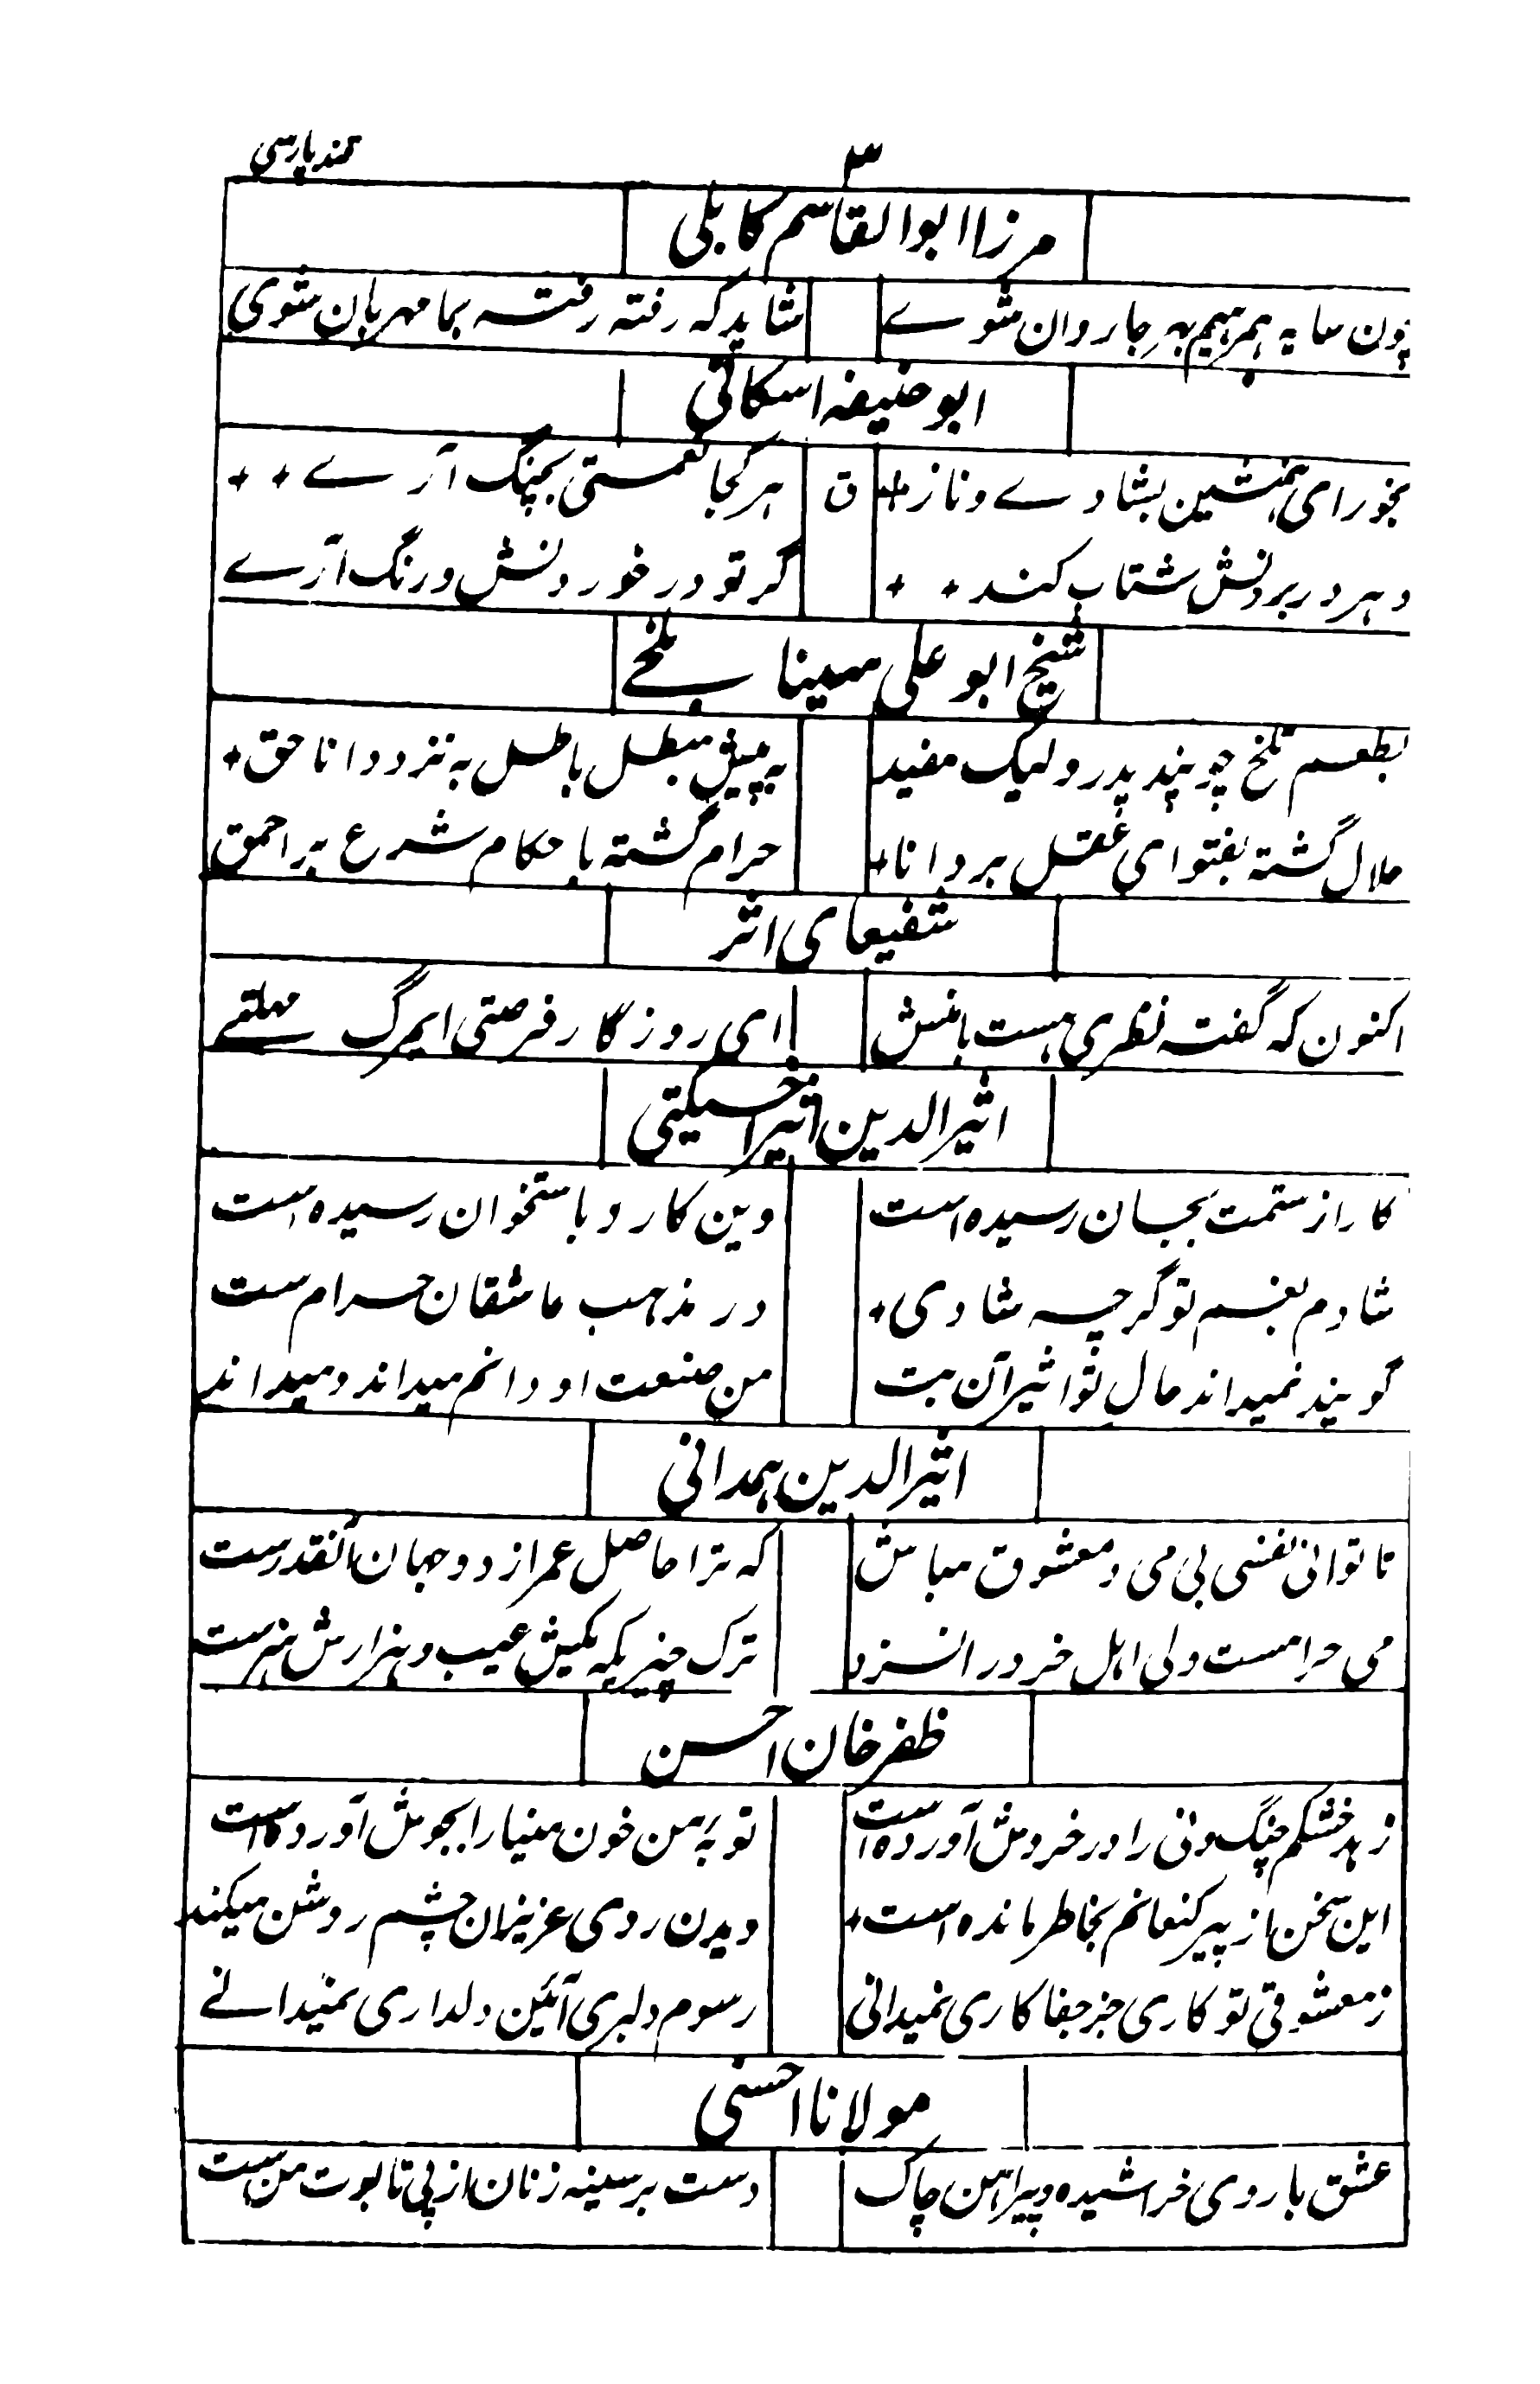 ۳
قند پارسی
مرزا ابوالقاسم کابلی
چون سایه همرهیم بهر جا روان شوے شاید که رفته رفته بما مهربان شوی
ابو حنیفه اسکافی
بخور ای همنشین بشادے و ناز + ق هر کجا نعمستی بچنگ آرے + +
دهر در بردنش شتاب کند + + گر تو در خوردنش درنگ آرے
شیخ ابو علی سینا بلخے
بطعم تلخ چو پند پدر ولیک مفید به پیش مبطل باطل به نزد دانا حق +
حلال گشته بفتوای عقل بر دانا + حرام گشته باحکام شرع بر احمق
شفیعای اثر
اکنون که گفته نظری هست بامنش ای روزگار فرصتی ایمرگ مهلتے
اثیرالدین اثیر اخسیکتی
کار از ستمت بجان رسیده است وین کارد باستخوان رسیده است
شادم بغم تو گرچه شادی + در مذهب عاشقان حرام ست
گویند نمیداند حال تو اثیر آن بت من صنعت او دانم میداند و میداند
اثیرالدین همدانی
تا توانی نفسی بی می و معشوق مباش که ترا حاصل عمر از دو جهان آنقدرست
می حرامست ولی اهل خرد را نسزد ترک چیزیکه یکیش عیب و هزارش هنرست
ظفر خان احسن
زهد خشکم چنگ ونی را در خروش آورده است توبهٔ من خون مینا را بجوش آورده است
این سخن از پیر کنعانم بخاطر مانده است + دیدن روی عزیزان چشم روشن میکند
ز معشوقی تو کاری جز جفا کاری نمیدانی رسوم دلبری آئین دلداری نمیدانے
مولانا احسنی
عشق با روی خراشیده و پیراهن چاک دست بر سینه زنان از پی تابوت من ست